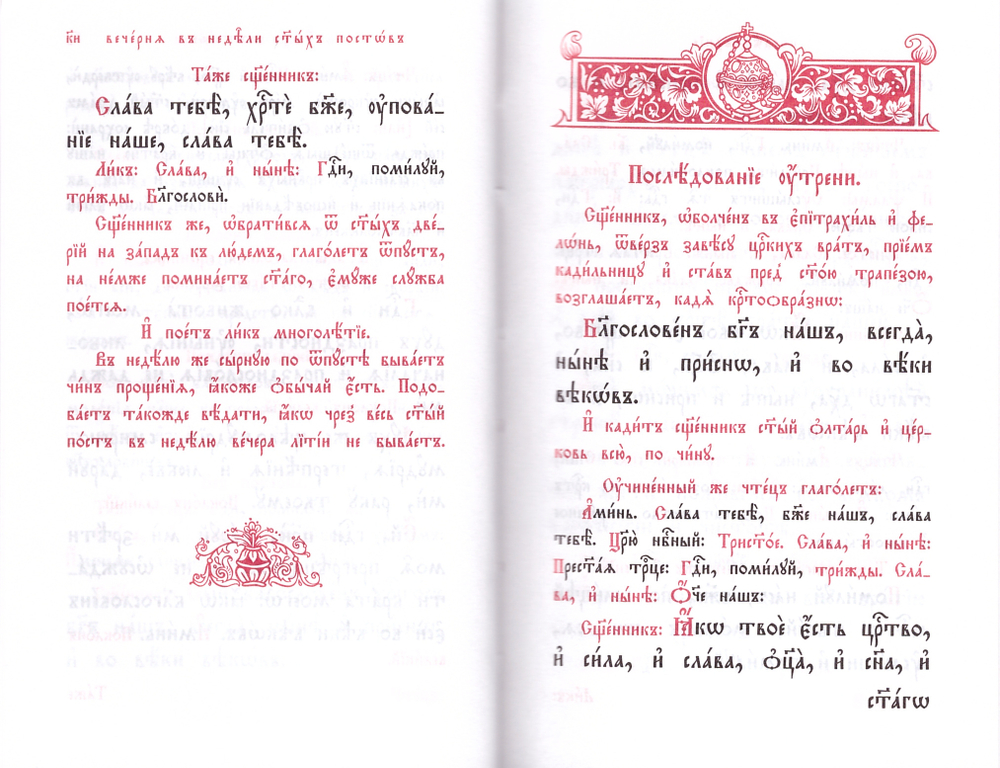 к҃и вече́рнѧ въ недѣ́ли ст҃ы́хъ посто́въ
Та́же сщ҃е́нникъ:
Сла́ва тебѣ̀, хрⷭ҇тѐ бж҃е, ᲂу҆пова́_
нїе на́ше, сла́ва тебѣ̀.
Ли́къ: Сла́ва, и҆ ны́нѣ: Гдⷭ҇и, поми́лꙋй,
три́жды. Бл҃гословѝ.
Сщ҃е́нникъ же, ѡ҆брати́всѧ ѿ ст҃ы́хъ две_
рі́й на за́падъ къ лю́демъ, глаго́летъ ѿпꙋ́стъ,
на не́мже помина́етъ ст҃а́го, є҆мꙋ́же слꙋ́жба
пое́тсѧ.
И҆ пое́тъ ли́къ многолѣ́тїе.
Въ недѣ́лю же сы́рнꙋю по ѿпꙋ́стѣ быва́етъ
чи́нъ проще́нїѧ, ꙗ҆́коже ѻ҆бы́чай є҆́сть. Подо_
ба́етъ та́кожде вѣ́дати, ꙗ҆́кѡ чрез̾ ве́сь ст҃ы́й
по́стъ въ недѣ́лю ве́чера літі́и не быва́етъ.
Послѣ́дованїе ᲂу҆́трени.
Сщ҃е́нникъ, ѡ҆болче́нъ въ є҆пїтрахи́ль и҆ фе_
ло́нь, ѿве́рзъ завѣ́сꙋ црⷭ҇кихъ вра́тъ, прїе́мъ
кади́льницꙋ и҆ ста́въ пред̾ ст҃о́ю трапе́зою,
возглаша́етъ, кадѧ̀ крⷭ҇тоѻбра́знѡ:
Бл҃гослове́нъ бг҃ъ на́шъ, всегда̀,
ны́нѣ и҆ при́снѡ, и҆ во вѣ́ки
вѣкѡ́въ.
И҆ кади́тъ сщ҃е́нникъ ст҃ы́й ѻ҆лта́рь и҆ це́р_
ковь всю̀, по чи́нꙋ.
Оу҆чине́нный же чте́цъ глаго́летъ:
А҆ми́нь. Сла́ва тебѣ̀, бж҃е на́шъ, сла́ва
тебѣ̀. Цр҃ю̀ нбⷭ҇ный: Трист҃о́е. Сла́ва, и҆ ны́нѣ:
Прест҃а́ѧ трⷪ҇це: Гдⷭ҇и, поми́лꙋй, три́жды. Сла́_
ва, и҆ ны́нѣ: Ѻ҆́ч҃е на́шъ:
Сщ҃е́нникъ: Ꙗ҆́кѡ твоѐ є҆́сть црⷭ҇тво,
и҆ си́ла, и҆ сла́ва, ѻ҆ц҃а̀, и҆ сн҃а, и҆
ст҃а́гѡ